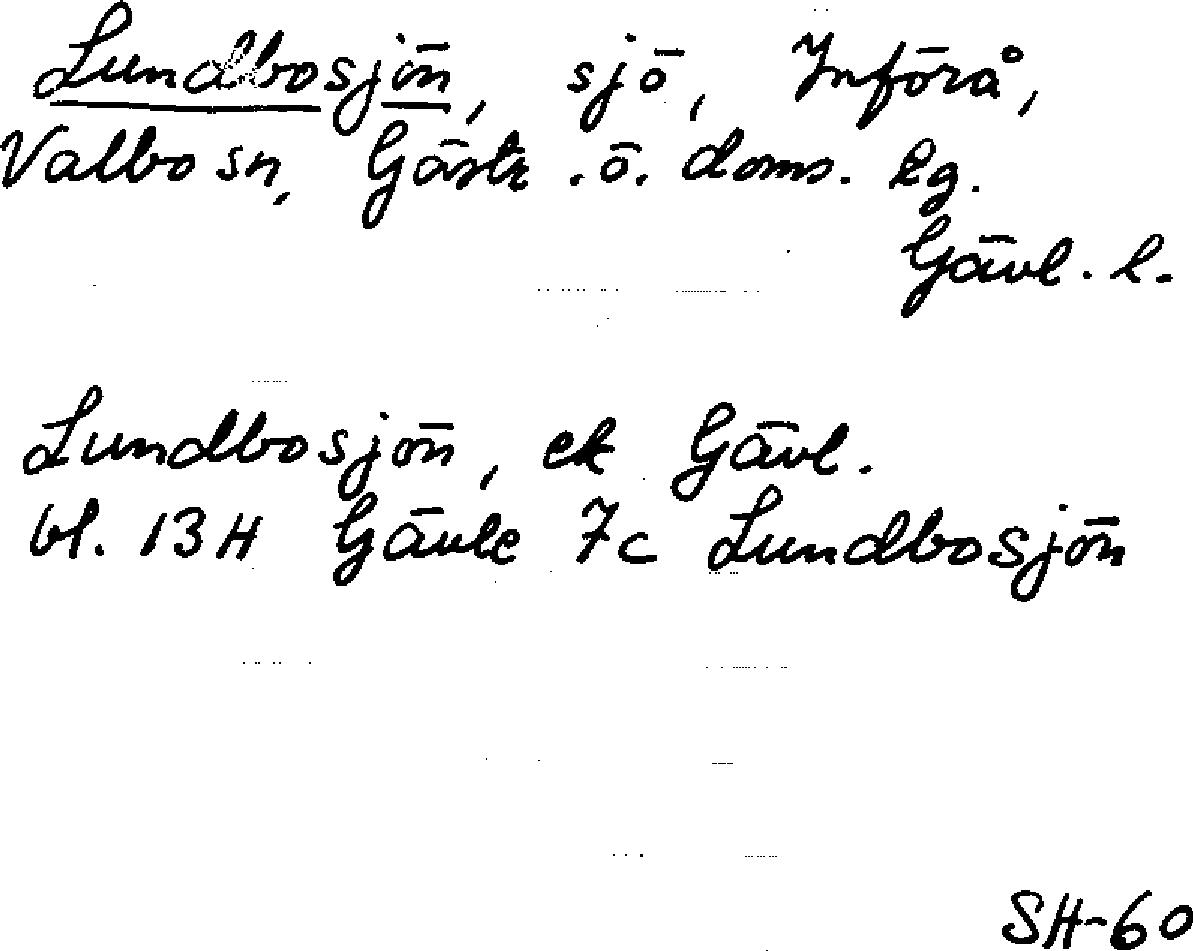 Lundbosjön, sjö, Införå,
Valbo sn, Gästr. ö. doms. lg.
Gävl. l.
Lundbosjön, ek Gävl.
bl. 13H Gävle 7c Lundbosjön
SH-60